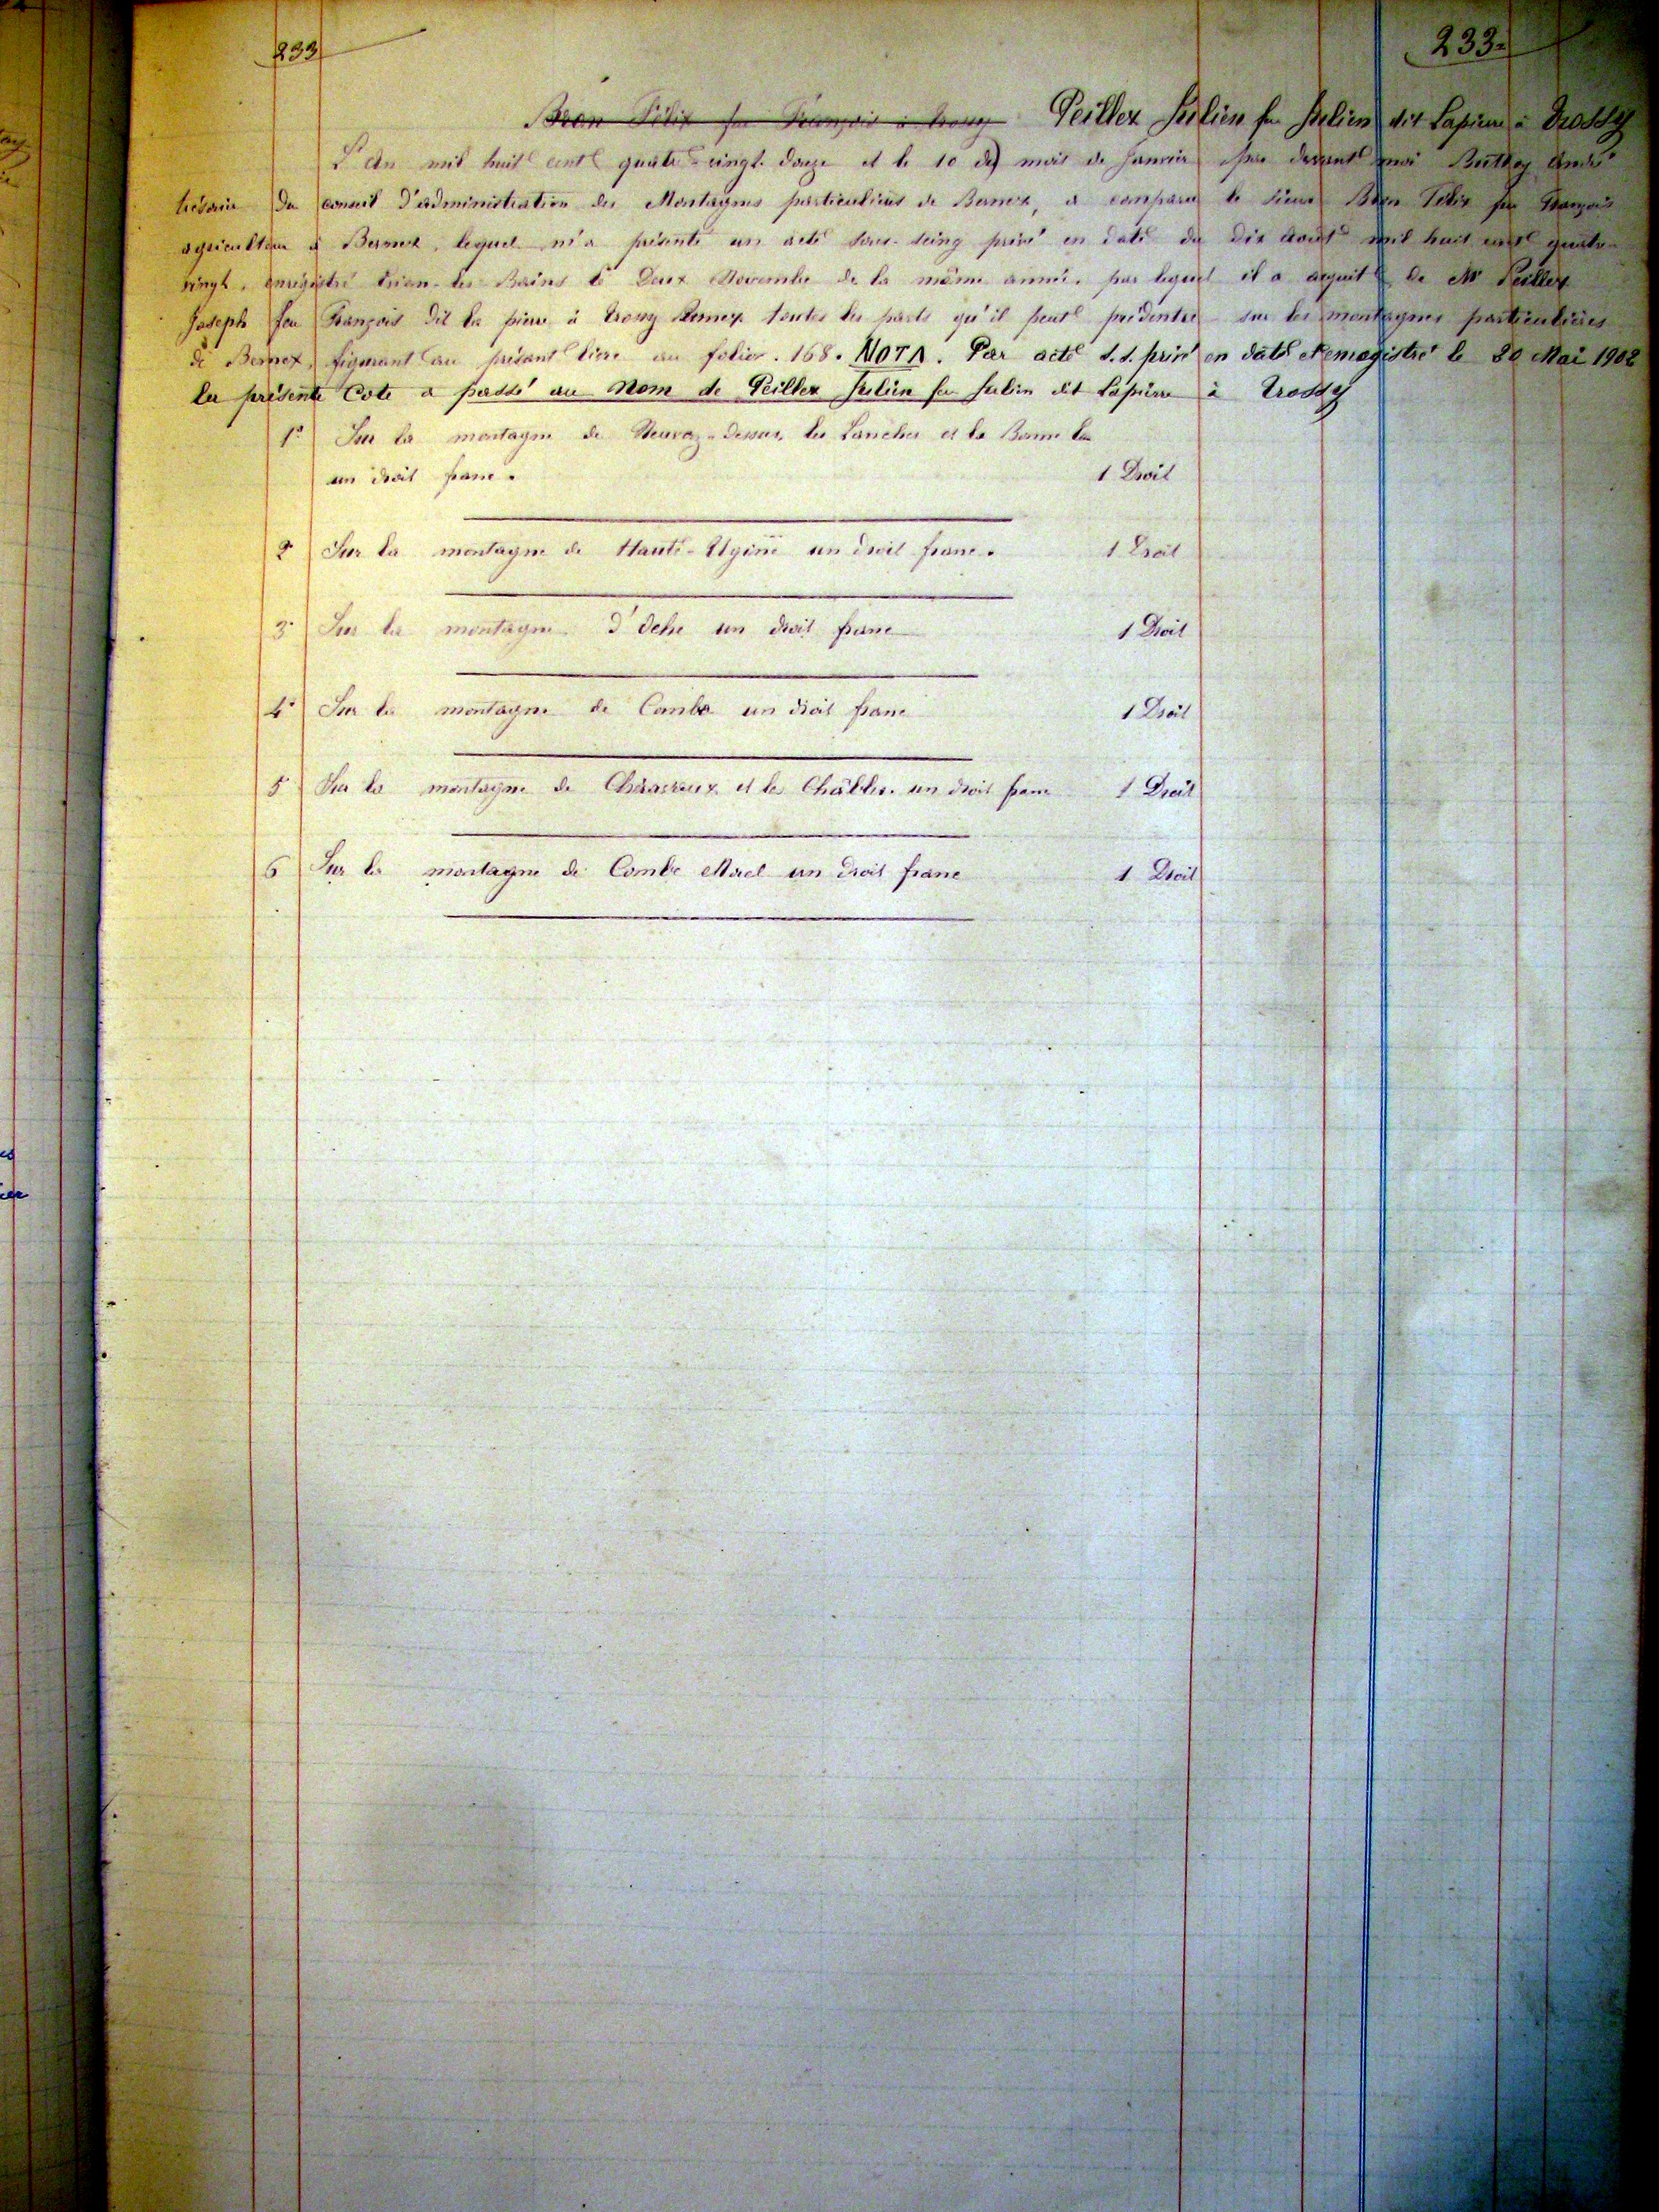 233 233
Bron Félix feu François à Trossy Peillex Julien feu Julien dit Lapierre à Trossy
L'An mil huit cent quatre-vingt-douze et le 10 du mois de Janvier par devant moi Buttay André
trésorier du conseil d'administration des Montagnes particulières de Bernex, a comparu le sieur Bron Félix feu François
agriculteur à Bernex, lequel m'a présenté un acte sous-seing privé en date du dix Août mil huit cent quatre-
vingt, enregistré Evian-les-Bains le Deux Novembre de la même année, par lequel il a acquit de Mr Peillex
Joseph feu François dit la pierre à Trossy Bernex toutes les parts qu'il peut prétendre sur les montagnes particulières
de Bernex, figurant au présent livre au folio. 168. NOTA. Par acte s.s. privé en date et enregistré le 30 Mai 1902
la présente Cote a passé au Nom de Peillex Julien feu Julien dit Lapierre à Trossy
1° Sur la montagne de Neuvaz-Dessus, les Lanches et la
un droit franc. 1 Droit
2° Sur la montagne de Haute-Ugine un droit franc. 1 Droit
3° Sur la montagne d'Oche un droit franc 1 Droit
4° Sur la montagne de Combe un droit franc 1 Droit
5 Sur la montagne de et les Châbles. un droit franc 1 Droit
6 Sur la montagne de Combe Morel un droit franc 1 Droit